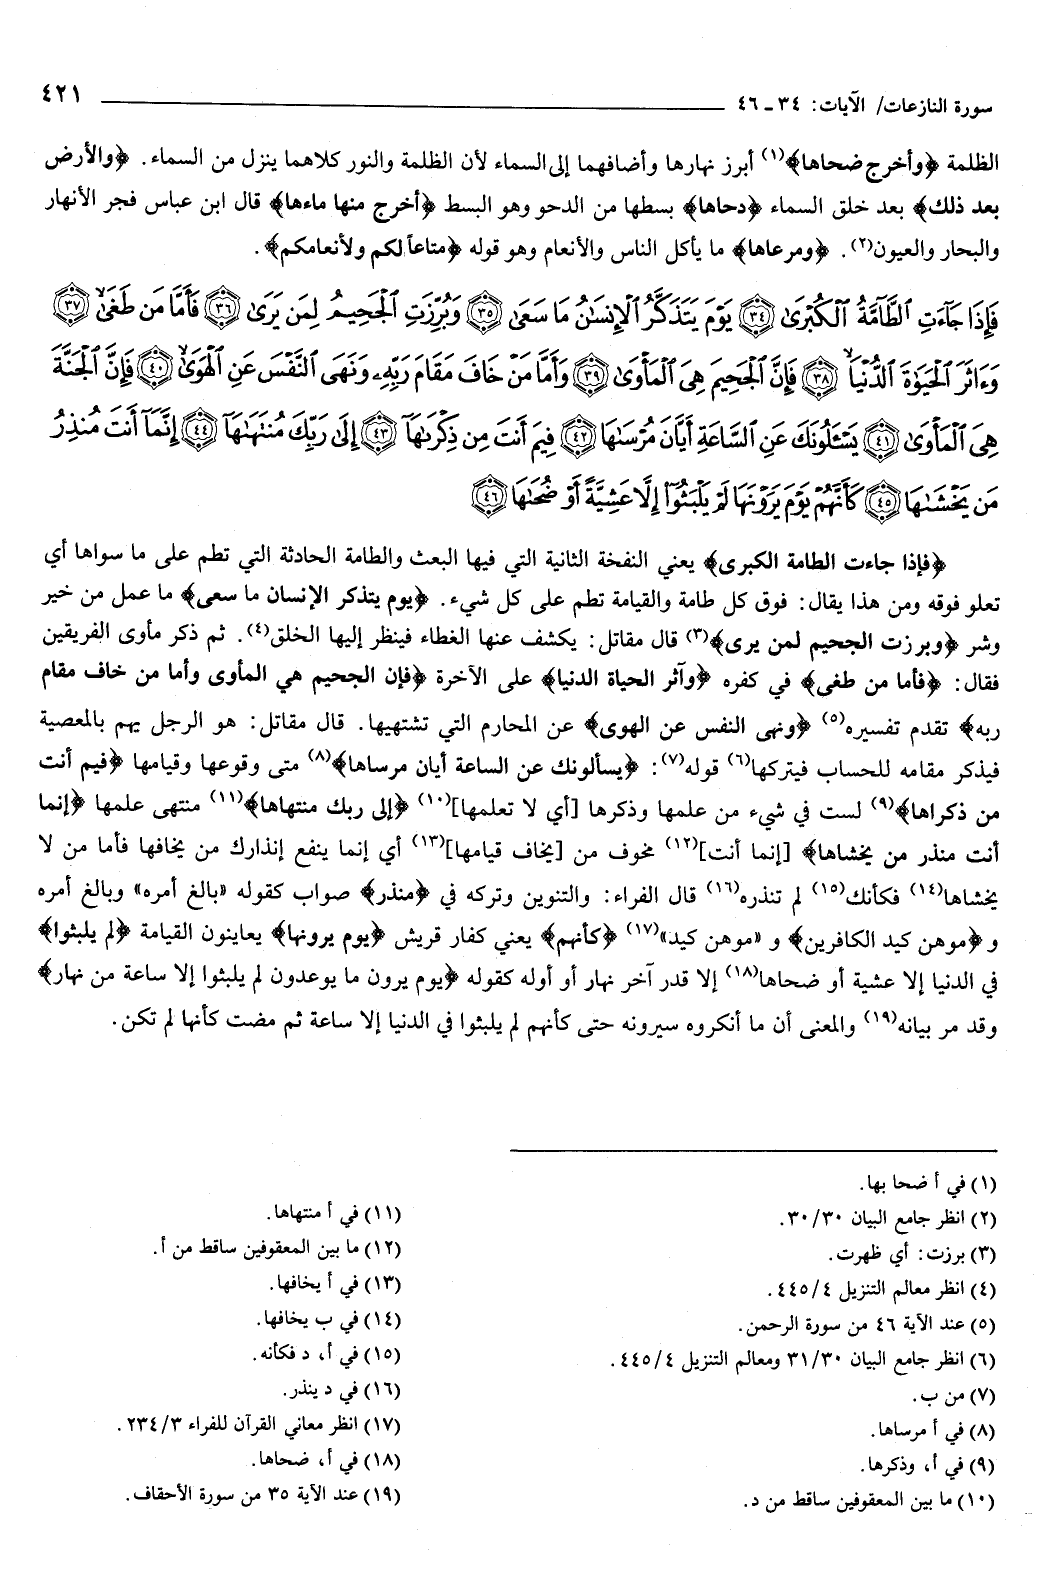 سورة النازعات/ الآيات: ٣٤ - ٤٦ ٤٢١
الظلمة ﴿وأخرج ضحاها﴾(١) أبرز نهارها وأضافهما إلى السماء لأن الظلمة والنور كلاهما ينزل من السماء. ﴿والأرض
بعد ذلك﴾ بعد خلق السماء ﴿دحاها﴾ بسطها من الدحو وهو البسط ﴿أخرج منها ماءها﴾ قال ابن عباس فجر الأنهار
والبحار والعيون(٢). ﴿ومرعاها﴾ ما يأكل الناس والأنعام وهو قوله ﴿متاعاً لكم ولأنعامكم﴾.
فَإِذَا جَآءَتِ ٱلطَّآمَّةُ ٱلْكُبْرَىٰ ﴿٣٤﴾ يَوْمَ يَتَذَكَّرُ ٱلْإِنسَٰنُ مَا سَعَىٰ ﴿٣٥﴾ وَبُرِّزَتِ ٱلْجَحِيمُ لِمَن يَرَىٰ ﴿٣٦﴾ فَأَمَّا مَن طَغَىٰ ﴿٣٧﴾
وَءَاثَرَ ٱلْحَيَوٰةَ ٱلدُّنْيَا ﴿٣٨﴾ فَإِنَّ ٱلْجَحِيمَ هِىَ ٱلْمَأْوَىٰ ﴿٣٩﴾ وَأَمَّا مَنْ خَافَ مَقَامَ رَبِّهِۦ وَنَهَى ٱلنَّفْسَ عَنِ ٱلْهَوَىٰ ﴿٤٠﴾ فَإِنَّ ٱلْجَنَّةَ
هِىَ ٱلْمَأْوَىٰ ﴿٤١﴾ يَسْـَٔلُونَكَ عَنِ ٱلسَّاعَةِ أَيَّانَ مُرْسَىٰهَا ﴿٤٢﴾ فِيمَ أَنتَ مِن ذِكْرَىٰهَآ ﴿٤٣﴾ إِلَىٰ رَبِّكَ مُنتَهَىٰهَآ ﴿٤٤﴾ إِنَّمَآ أَنتَ مُنذِرُ
مَن يَخْشَىٰهَا ﴿٤٥﴾ كَأَنَّهُمْ يَوْمَ يَرَوْنَهَا لَمْ يَلْبَثُوٓا۟ إِلَّا عَشِيَّةً أَوْ ضُحَىٰهَا ﴿٤٦﴾
﴿فإذا جاءت الطامة الكبرى﴾ يعني النفخة الثانية التي فيها البعث والطامة الحادثة التي تطم على ما سواها أي
تعلو فوقه ومن هذا يقال: فوق كل طامة والقيامة تطم على كل شيء. ﴿يوم يتذكر الإنسان ما سعى﴾ ما عمل من خير
وشر ﴿وبرزت الجحيم لمن يرى﴾(٣) قال مقاتل: يكشف عنها الغطاء فينظر إليها الخلق(٤). ثم ذكر مأوى الفريقين
فقال: ﴿فأما من طغى﴾ في كفره ﴿وآثر الحياة الدنيا﴾ على الآخرة ﴿فإن الجحيم هي المأوى وأما من خاف مقام
ربه﴾ تقدم تفسيره(٥) ﴿ونهى النفس عن الهوى﴾ عن المحارم التي تشتهيها. قال مقاتل: هو الرجل يهم بالمعصية
فيذكر مقامه للحساب فيتركها(٦) قوله(٧): ﴿يسألونك عن الساعة أيان مرساها﴾(٨) متى وقوعها وقيامها ﴿فيم أنت
من ذكراها﴾(٩) لست في شيء من علمها وذكرها [أي لا تعلمها](١٠) ﴿إلى ربك منتهاها﴾(١١) منتهى علمها ﴿إنما
أنت منذر من يخشاها﴾ [إنما أنت](١٢) مخوف من [يخاف قيامها](١٣) أي إنما ينفع إنذارك من يخافها فأما من لا
يخشاها(١٤) فكأنك(١٥) لم تنذره(١٦) قال الفراء: والتنوين وتركه في ﴿منذر﴾ صواب كقوله «بالغ أمره» وبالغ أمره
و﴿موهن كيد الكافرين﴾ و «موهن كيد»(١٧) ﴿كأنهم﴾ يعني كفار قريش ﴿يوم يرونها﴾ يعاينون القيامة ﴿لم يلبثوا﴾
في الدنيا إلا عشية أو ضحاها(١٨) إلا قدر آخر نهار أو أوله كقوله ﴿يوم يرون ما يوعدون لم يلبثوا إلا ساعة من نهار﴾
وقد مر بيانه(١٩) والمعنى أن ما أنكروه سيرونه حتى كأنهم لم يلبثوا في الدنيا إلا ساعة ثم مضت كأنها لم تكن.
(١) في أ ضحا بها.
(٢) انظر جامع البيان ٣٠/٣٠.
(٣) برزت: أي ظهرت.
(٤) انظر معالم التنزيل ٤/٤٤٥.
(٥) عند الآية ٤٦ من سورة الرحمن.
(٦) انظر جامع البيان ٣١/٣٠ ومعالم التنزيل ٤/٤٤٥.
(٧) من ب.
(٨) في أ مرساها.
(٩) في أ، وذكرها.
(١٠) ما بين المعقوفين ساقط من د.
(١١) في أ منتهاها.
(١٢) ما بين المعقوفين ساقط من أ.
(١٣) في أ يخافها.
(١٤) في ب يخافها.
(١٥) في أ، د فكأنه.
(١٦) في د ينذر.
(١٧) انظر معاني القرآن للفراء ٢٣٤/٣.
(١٨) في أ، ضحاها.
(١٩) عند الآية ٣٥ من سورة الأحقاف.